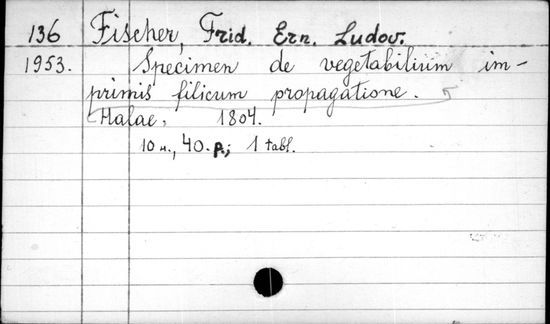 136 Fischer, Frid. Ern. Ludov.
1953. Specimen de vegetabilium im-
primis filicum propagatione.
Halae, 1804.
10 н., 40. p.; 1 tabl.